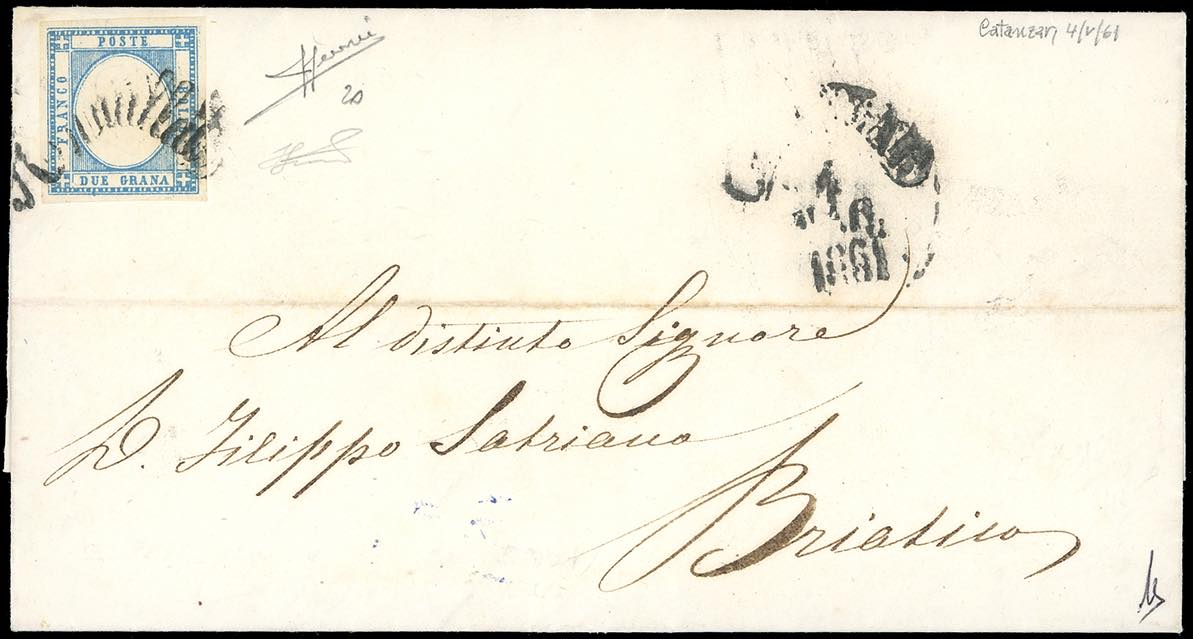 POSTE
FRANCO
DUE GRANA
20
Catanzaro 4/V/61
1861
Al distinto Signore
D. Filippo Satriano
Briatico